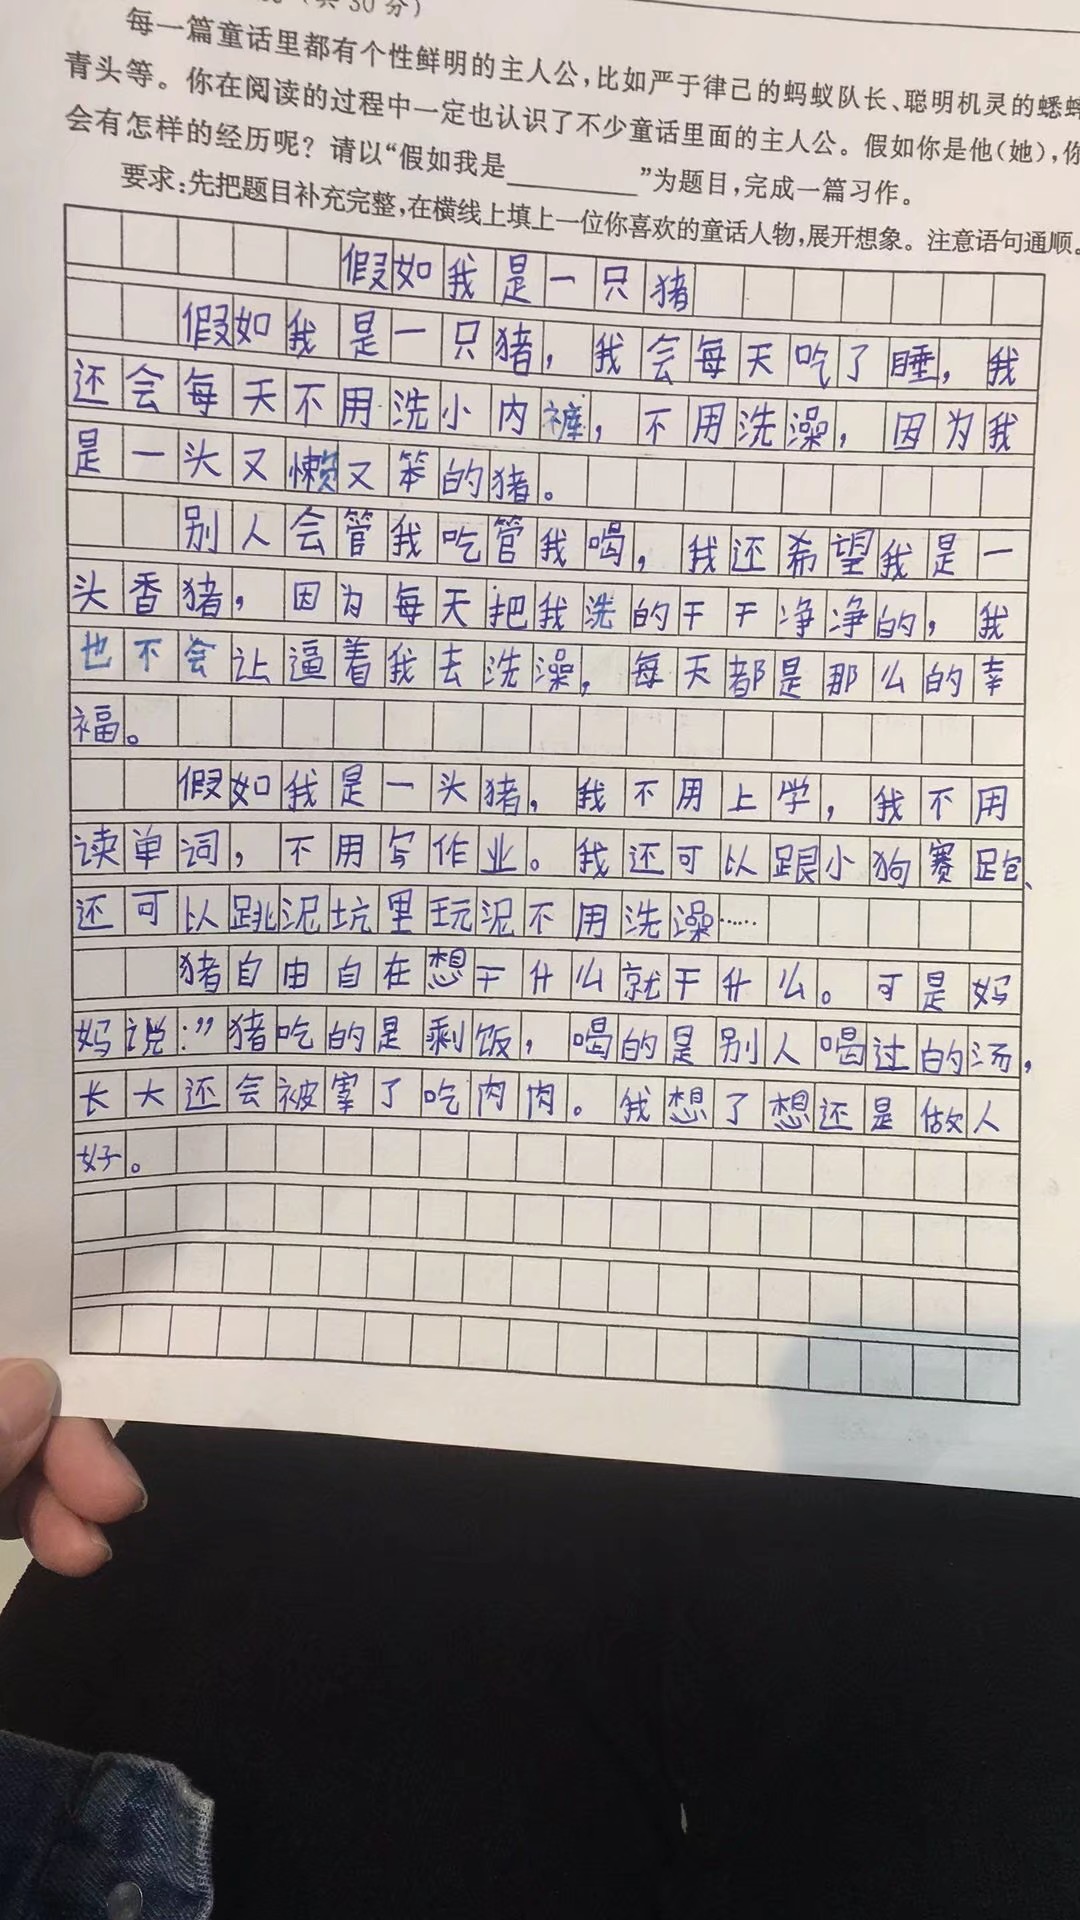 (共30分)
每一篇童话里都有个性鲜明的主人公,比如严于律己的蚂蚁队长、聪明机灵的蟋蟀
青头等。你在阅读的过程中一定也认识了不少童话里面的主人公。假如你是他(她),你
会有怎样的经历呢?请以“假如我是________”为题目,完成一篇习作。
要求:先把题目补充完整,在横线上填上一位你喜欢的童话人物,展开想象。注意语句通顺。
假如我是一只猪
假如我是一只猪,我会每天吃了睡,我
还会每天不用洗小内裤,不用洗澡,因为我
是一头又懒又笨的猪。
别人会管我吃管我喝,我还希望我是一
头香猪,因为每天把我洗的干干净净的,我
也不会让逼着我去洗澡,每天都是那么的幸
福。
假如我是一头猪,我不用上学,我不用
读单词,不用写作业。我还可以跟小狗赛跑、
还可以跳泥坑里玩泥不用洗澡……
猪自由自在想干什么就干什么。可是妈
妈说:”猪吃的是剩饭,喝的是别人喝过的汤,
长大还会被宰了吃肉肉。我想了想还是做人
好。